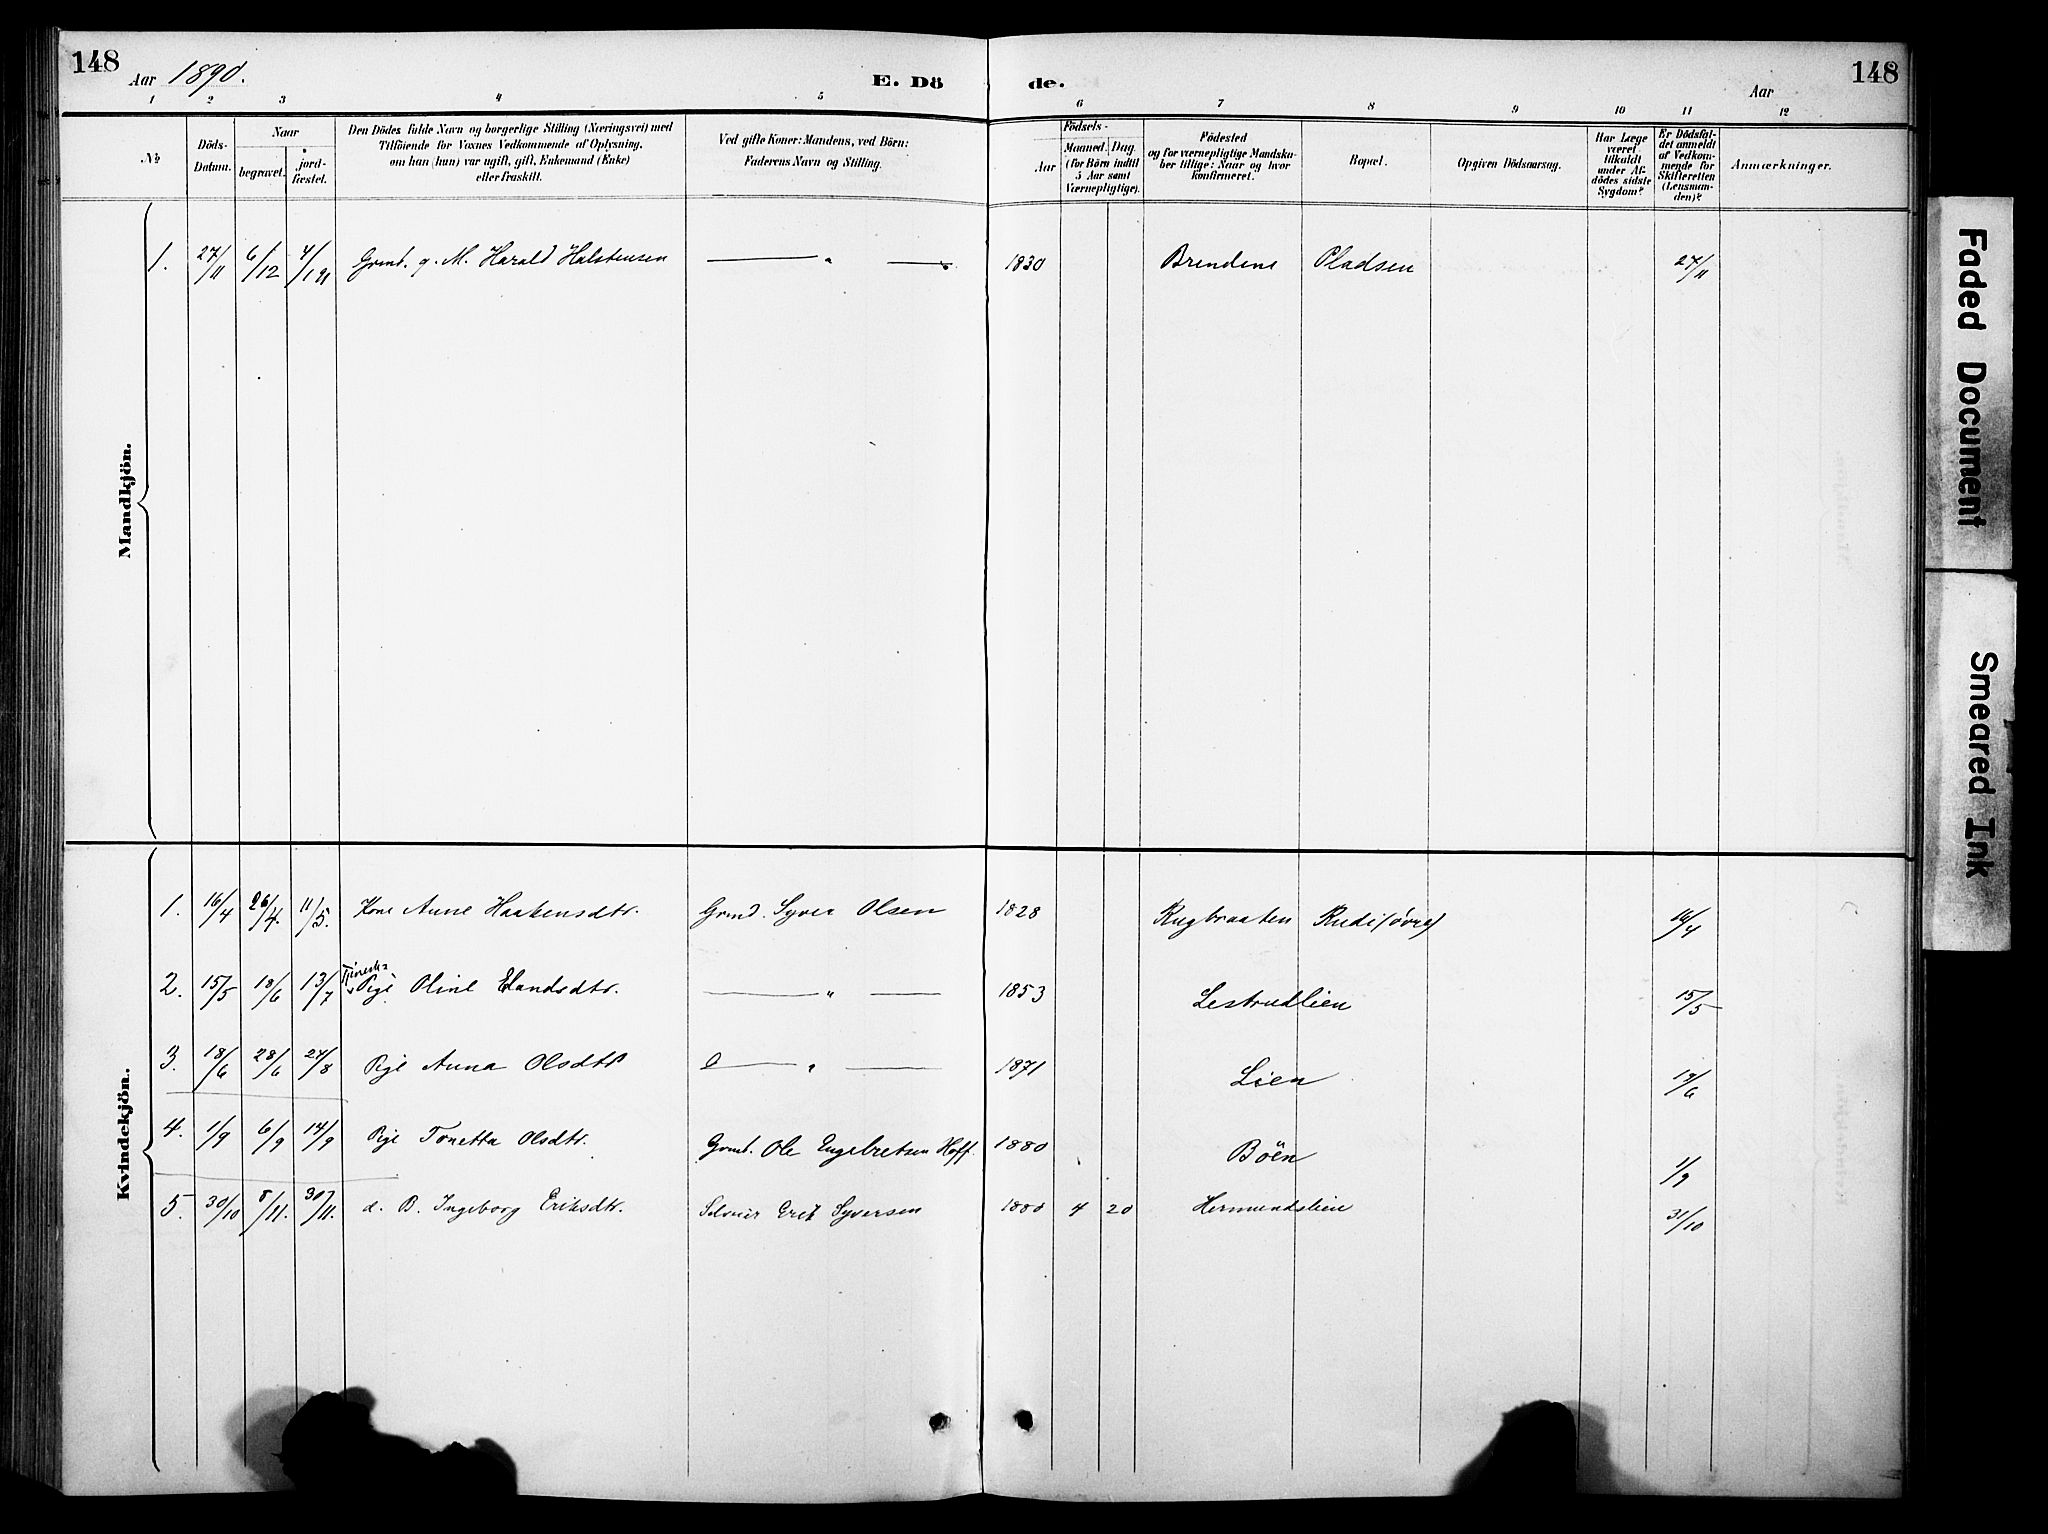 148
Aar 1890.
E. Döde.
Aar
148
1 2 3 4 5 6 7 8 9 10 11 12
№
Döds-Datum.
Naar
begravet.
jordfæstet.
Den Dödes fulde Navn og borgerlige Stilling (Næringsvei) med
Tilföiende for Voxnes Vedkommende af Oplysning,
om han (hun) var ugift, gift, Enkemand (Enke)
eller fraskilt.
Ved gifte Koner: Mandens, ved Börn:
Faderens Navn og Stilling.
Födsels-
Aar
Maaned. Dag.
(for Börn indtil
5 Aar samt
Værnepligtige).
Födested
og for værnepligtige Mandskaber tillige: Naar og hvor
konfirmeret.
Bopæl.
Opgiven Dödsaarsag.
Har Læge
været
tilkaldt
under Afdödes sidste
Sygdom?
Er Dödsfaldet anmeldt
af Vedkommende for
Skifteretten
(Lensmanden)?
Anmærkninger.
Mandkjön.
1. 27/11 6/12 4/1 91 Grmd. g. M. Harald Halstensen — " — 1830 Brendene Pladsen 27/11
Kvindekjön.
1. 16/4 26/4. 11/5. Kone Anne Haakensdtr. Grmd. Syver Olsen 1828 Rugbraaten Rudi (øvre) 16/4
2. 15/5 18/6 13/7 Tjeneste Pige Oline Elandsdtr. — " — 1853 Lestrudlien 15/5
3. 18/6 28/6 24/8 Pige Anna Olsdtr — " — 1871 Lien 19/6
4. 1/9 6/9 14/9 Pige Tonetta Olsdtr. Grmd. Ole Engebretsen Hoff. 1880 Böen 1/9
5. 30/10 8/11. 30/11. d. B. Ingeborg Eriksdtr. Selveier Erik Syversen 1880 4 20 Hermundslien 31/10
Faded Document
Smeared Ink